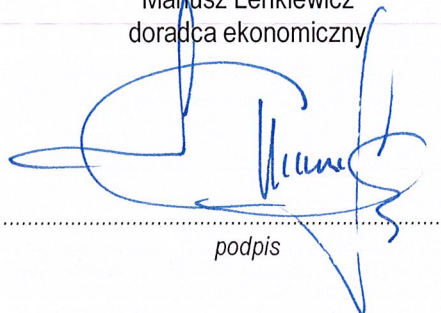 Mariusz Lenkiewicz
doradca ekonomiczny
podpis